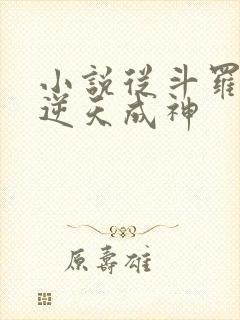 小說從斗羅
逆天成神
原壽雄